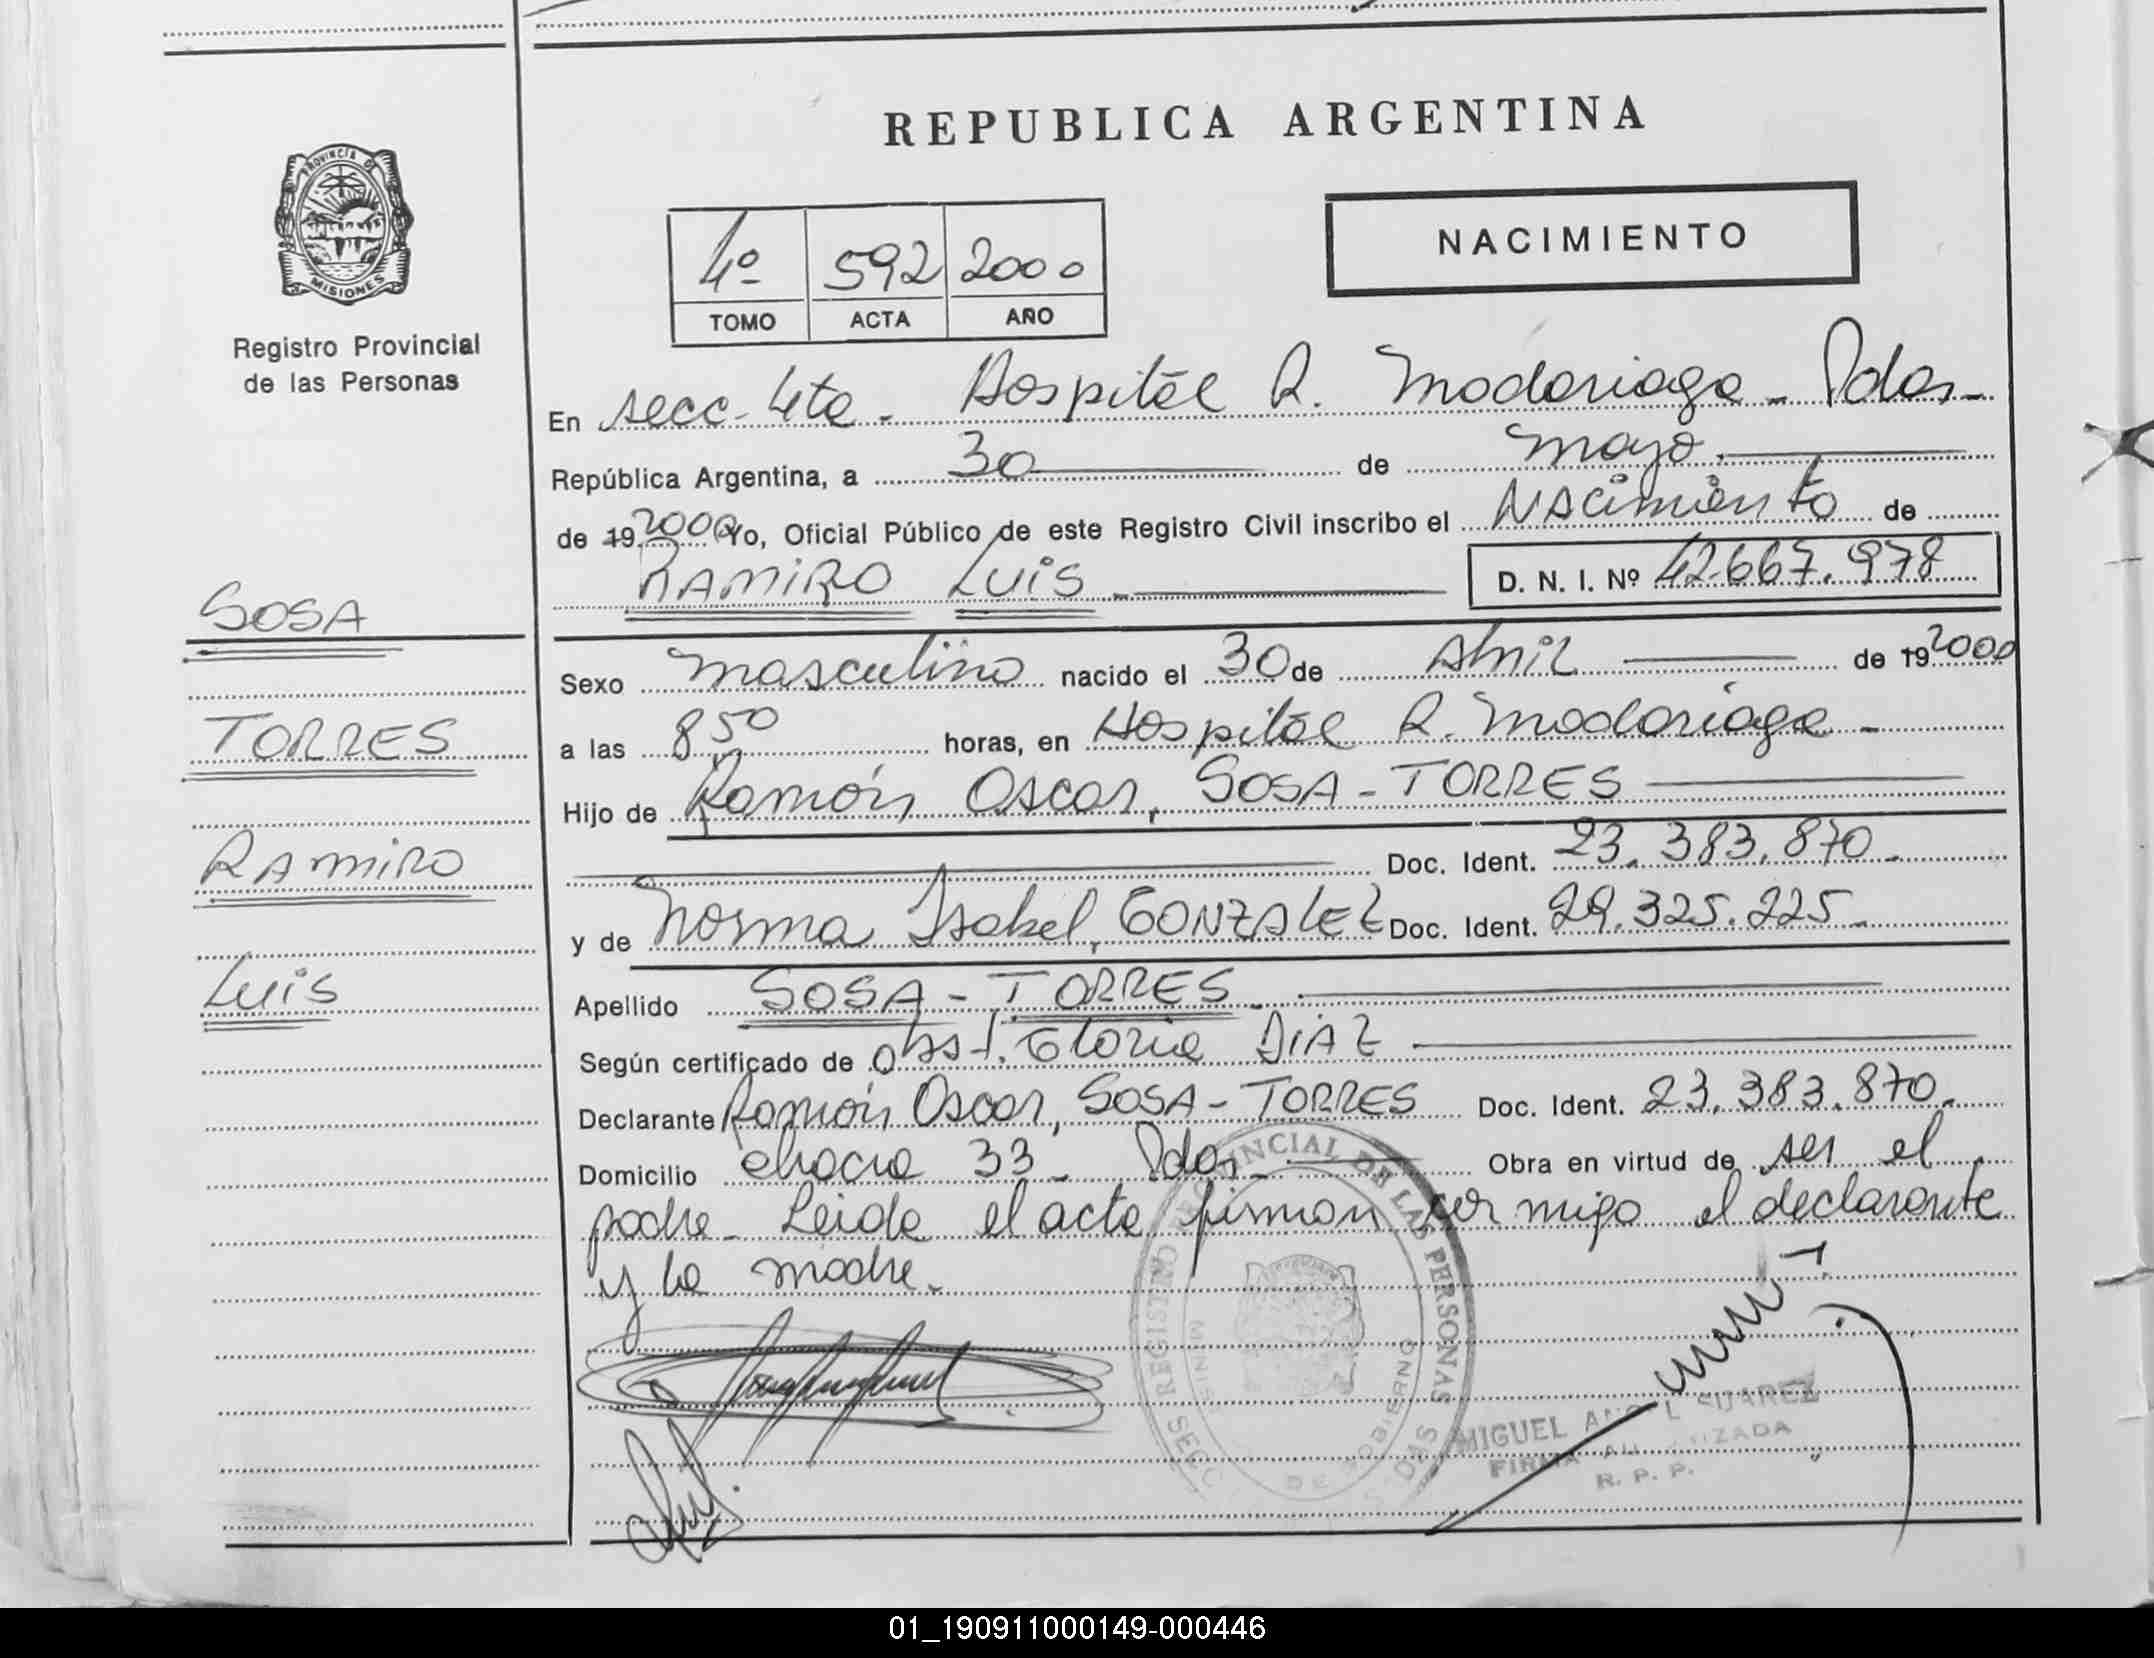 REPUBLICA ARGENTINA
NACIMIENTO
4º 592 2000
TOMO ACTA AÑO
PROVINCIA DE
MISIONES
Registro Provincial
de las Personas
En secc. 4ta. Hospital R. Madariaga - Pdas -
República Argentina, a 30 de mayo.
de 19 2000 Yo, Oficial Público de este Registro Civil inscribo el Nacimiento de
RAMIRO LUIS. D. N. I. Nº 42.667.978
SOSA
TORRES
RAMIRO
LUIS
Sexo masculino nacido el 30 de Abril de 19 2000
a las 8 50 horas, en Hospital R. Madariaga -
Hijo de Ramón Oscar, SOSA - TORRES
Doc. Ident. 23.383.870.
y de Norma Isabel, GONZALEZ Doc. Ident. 29.325.225.
Apellido SOSA - TORRES.
Según certificado de Obst. Gloria DIAZ
Declarante Ramón Oscar, SOSA - TORRES Doc. Ident. 23.383.870.
Domicilio chacra 33 - Pdas - Obra en virtud de ser el
padre - Leida el acta firman con migo el declarante
y la madre.
REGISTRO PROVINCIAL DE LAS PERSONAS
DE GOBIERNO
MIGUEL ANGEL SUAREZ
FIRMA AUTORIZADA
R. P. P.
01_190911000149-000446